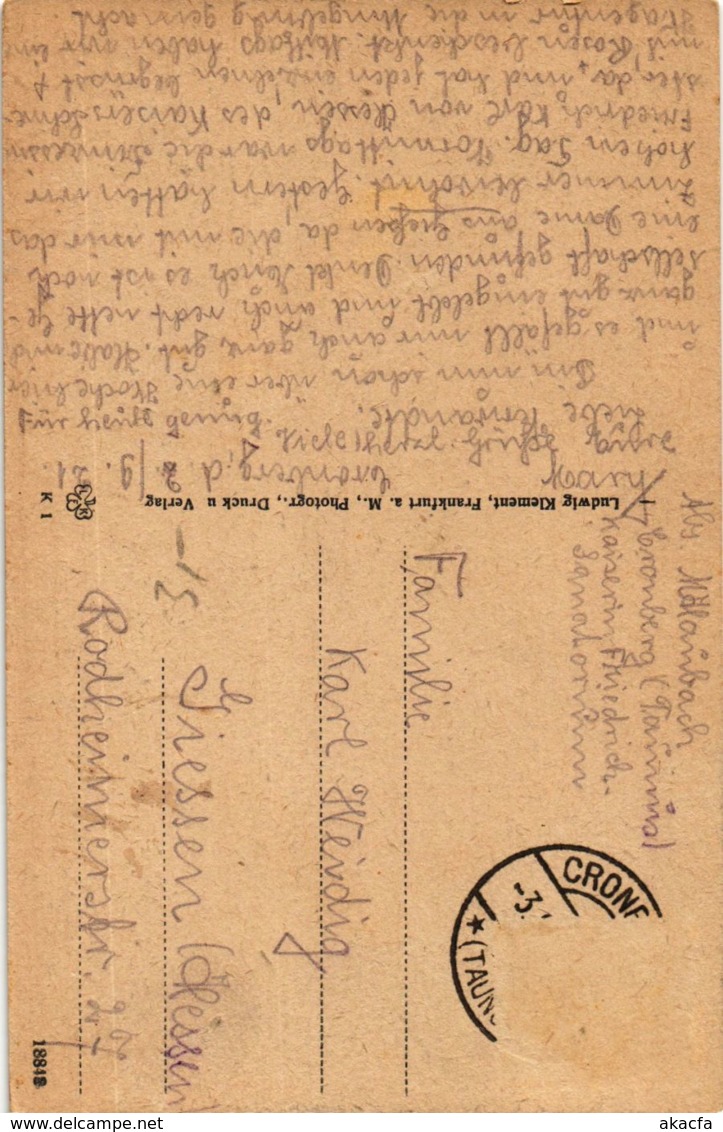 Cronberg, d. 2/9. 21.
Liebe Verwandte.
Bin nun schon über eine Woche hier
und es gefällt mir auch ganz gut. Habe mich
ganz gut eingelebt und auch recht nette Ge-
sellschaft gefunden. Denkt Euch es ist noch
eine Dame aus Gießen da, die mit mir das
Zimmer bewohnt. Gestern hatten wir
hohen Tag. Vormittags war die Prinzessin
Friedrich Karl von Hessen, des Kaisers Schwe-
ster da, und hat jeden einzelnen begrüsst &
mit Rosen beschenkt. Mittags haben wir eine
in die Umgebung gemacht.
Für heute genug.
Ludwig Klement, Frankfurt a. M., Photogr., Druck u Verlag
K 1
Cronberg (Taunus)
Kaiserin Friedrich-
Sanatorium
Familie
Karl Weidig
Giessen (Hessen)
Rodheimerstr.
15
CRONB
-3.
(TAUNU
18848
akacfa